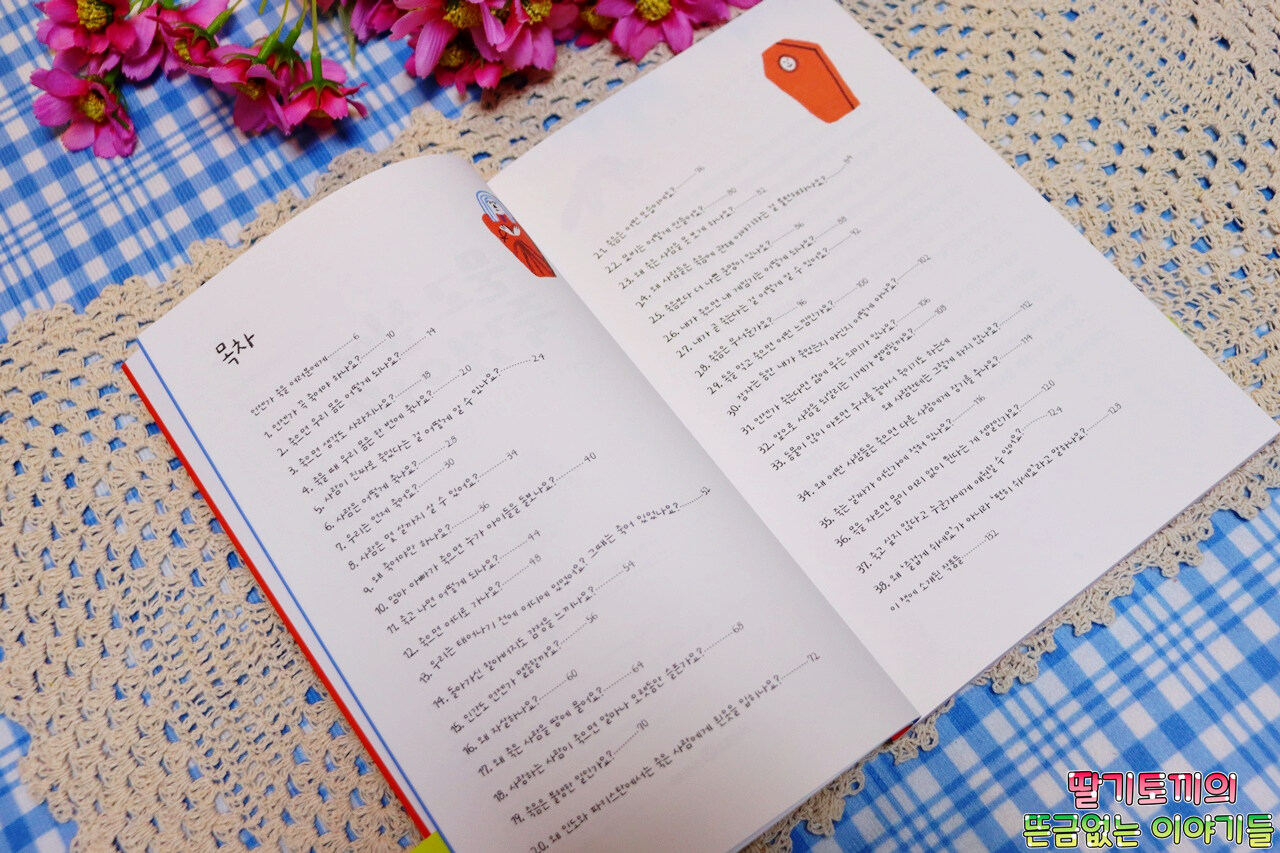 목차
언젠가 죽을 여러분에게 6
1. 언젠가 꼭 죽어야 하나요? 10
2. 죽으면 우리 몸은 어떻게 되나요? 14
3. 죽으면 생각도 사라지나요? 18
4. 죽을 때 우리 몸은 한 번에 죽나요? 20
5. 사람이 진짜로 죽었다는 걸 어떻게 알 수 있나요? 24
6. 사람은 어떻게 죽나요? 28
7. 우리는 언제 죽어요? 30
8. 사람은 몇 살까지 살 수 있어요? 34
9. 왜 죽어야만 하나요? 36
10. 엄마 아빠가 죽으면 누가 아이들을 돌보나요? 40
11. 죽고 나면 어떻게 되나요? 44
12. 죽으면 어디로 가나요? 48
13. 우리는 태어나기 전에 어디에 있었어요? 그때는 죽어 있었나요? 52
14. 돌아가신 할아버지도 감정을 느끼나요? 54
15. 인간도 언젠가 멸종할까요? 56
16. 왜 자살하나요? 60
17. 왜 죽은 사람을 땅에 묻어요? 64
18. 사랑하는 사람이 죽으면 얼마나 오랫동안 슬픈가요? 68
19. 죽음은 불행한 일인가요? 70
20. 왜 인도와 파키스탄에서는 죽은 사람에게 흰옷을 입히나요? 72
21. 죽음은 어떤 모습이에요? 76
22. 유리는 어떻게 만들어요? 80
23. 왜 죽은 사람을 못 보게 하나요? 82
24. 왜 사람들은 죽음에 관해 이야기하는 걸 불편해하나요? 84
25. 죽음보다 더 나쁜 운명이 있나요? 86
26. 내가 죽으면 내 게임기는 어떻게 되나요? 88
27. 내가 곧 죽는다는 걸 어떻게 알 수 있어요? 92
28. 죽음은 무서운가요? 96
29. 독을 먹고 죽으면 어떤 느낌인가요? 100
30. 잠자는 동안 내가 죽었는지 아닌지 어떻게 아나요? 102
31. 언젠가 죽는다면 삶에 무슨 의미가 있나요? 106
32. 앞으로 사람을 되살리는 기계가 발명될까요? 108
33. 동물이 많이 아프면 주사를 놓아서 죽이기도 하는데
왜 사람한테는 그렇게 하지 않나요? 112
34. 왜 어떤 사람들은 죽으면 다른 사람에게 장기를 주나요? 114
35. 죽은 날짜가 어딘가에 적혀 있나요? 116
36. 목을 자르면 몸이 머리 없이 뛴다는 게 정말인가요? 120
37. 죽고 싶지 않다고 누군가에게 애원할 수 있어요? 124
38. 왜 '즐겁게 쉬세요'가 아니라 '편히 쉬세요'라고 말하나요? 128
이 책에 소개된 작품들 132
딸기토끼의
뜬금없는 이야기들